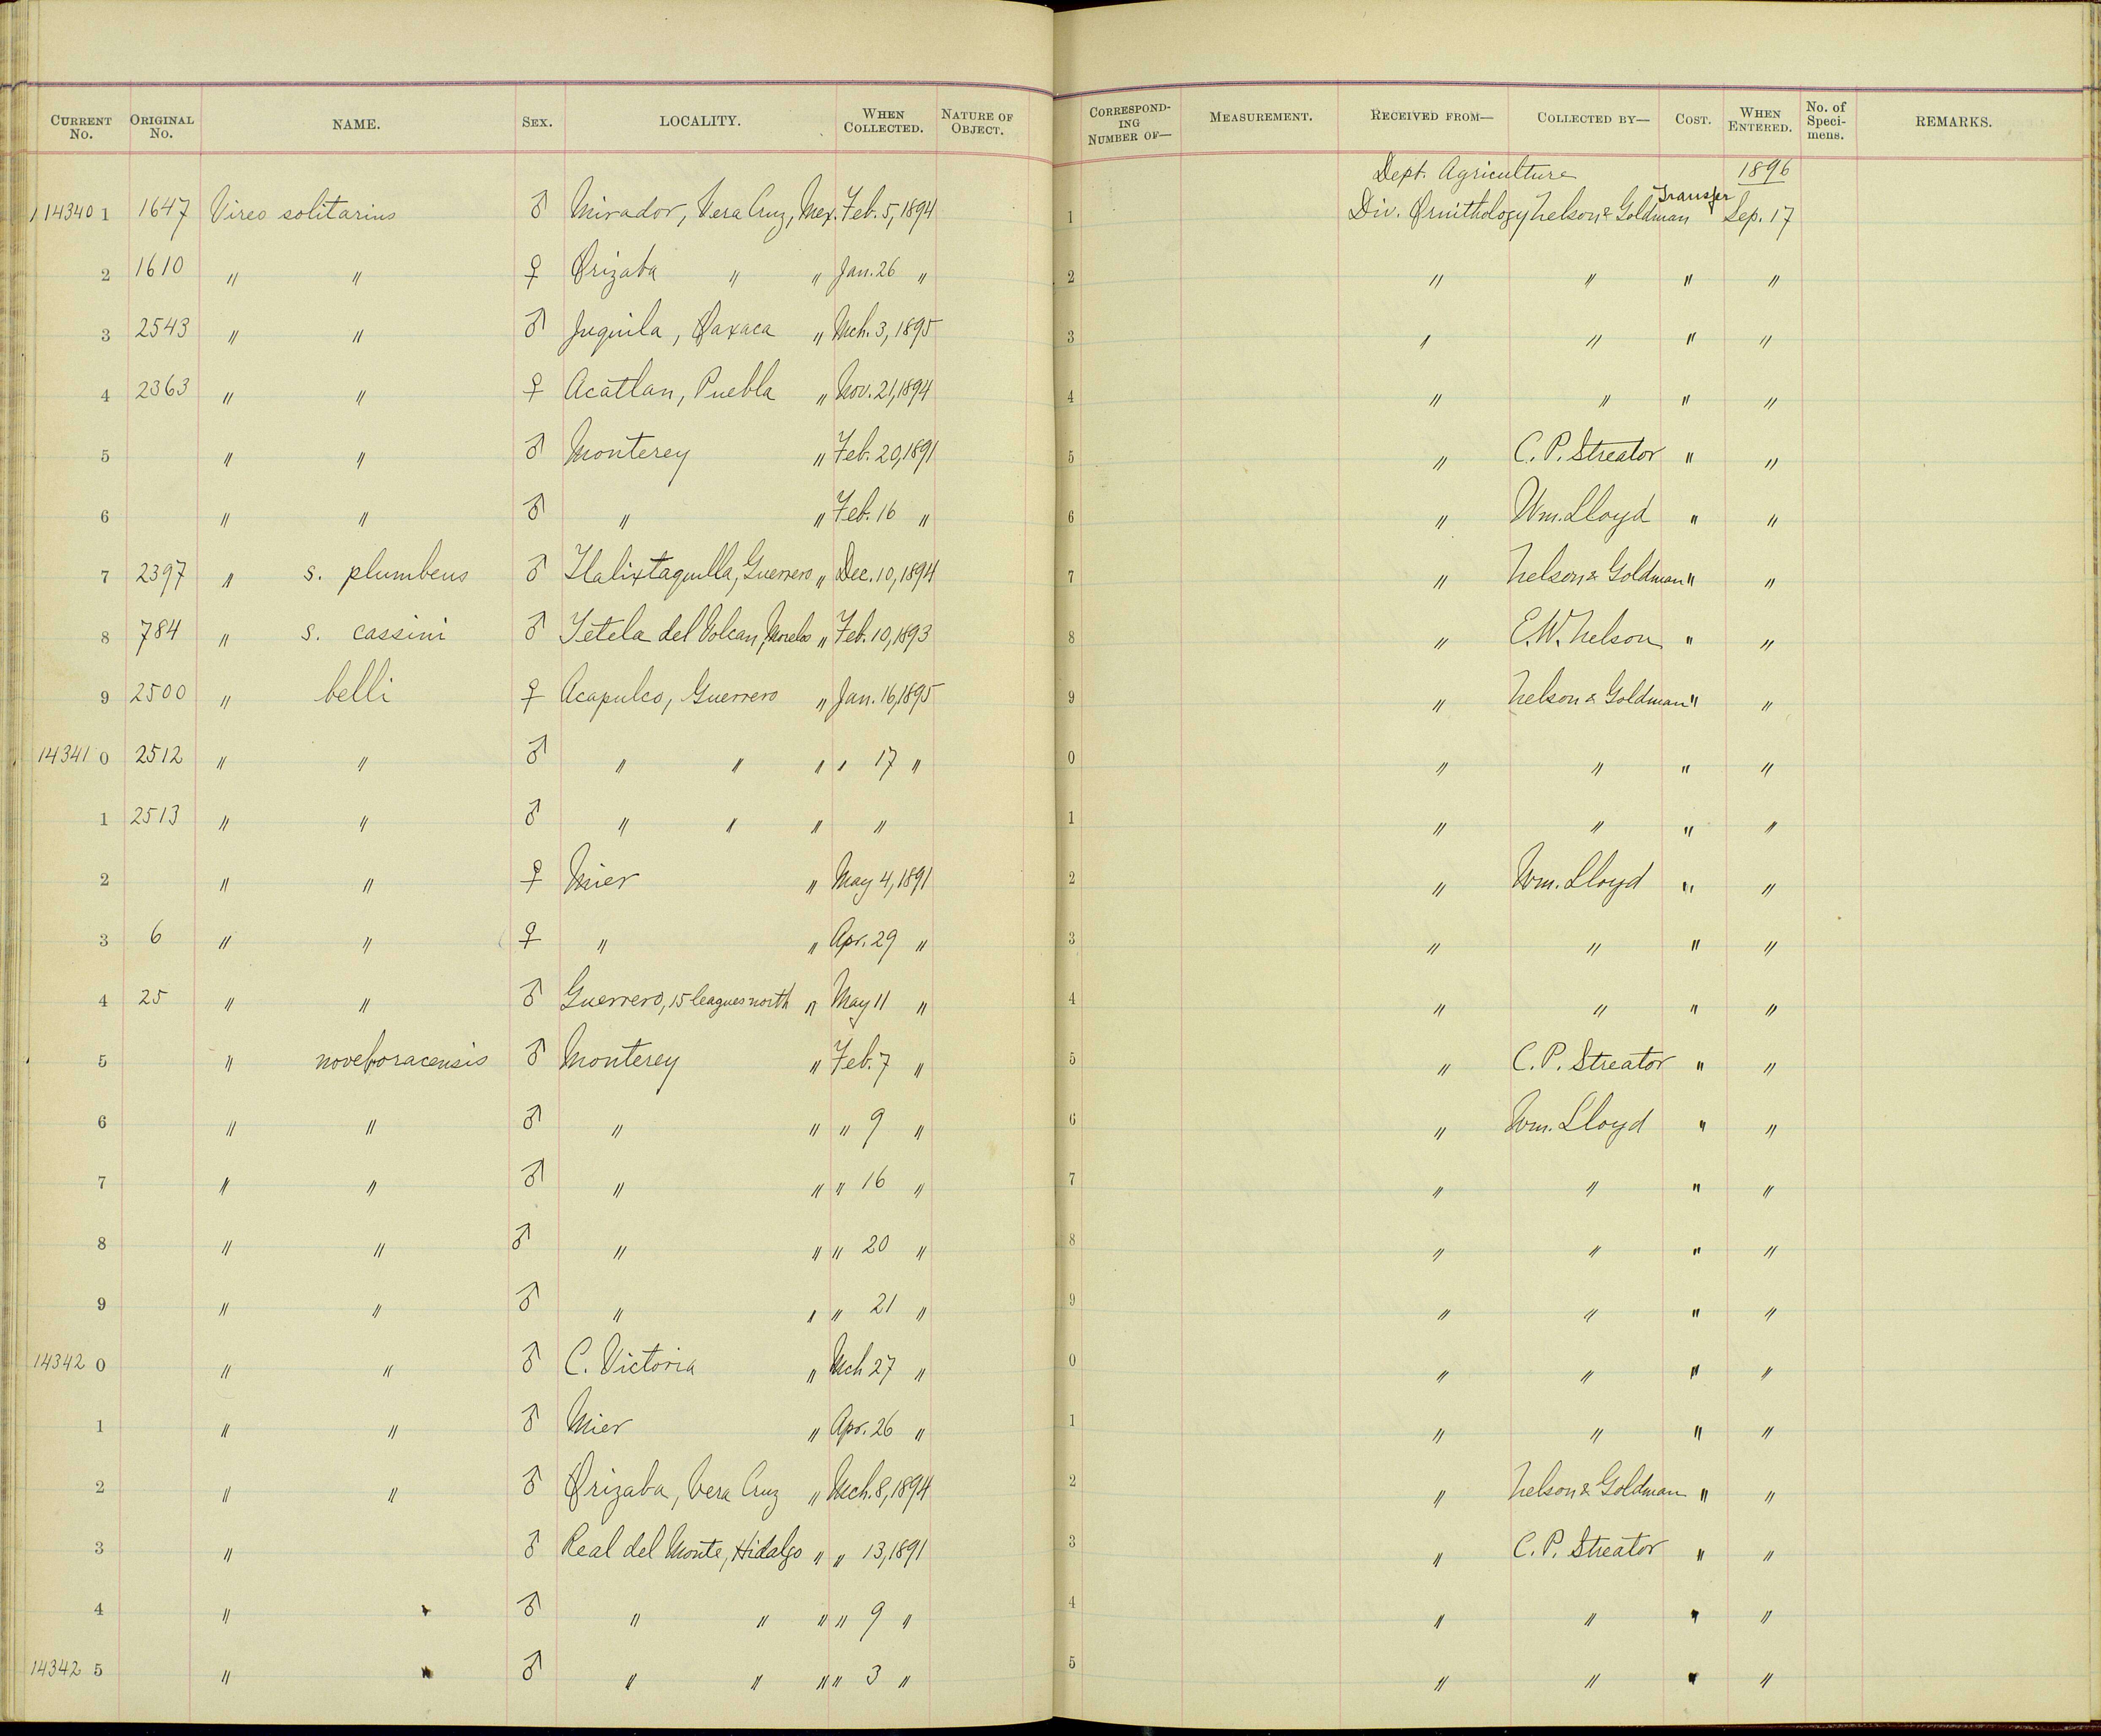 CURRENT No. ORIGINAL No. NAME. SEX. LOCALITY. WHEN COLLECTED. NATURE OF OBJECT. CORRESPONDING NUMBER OF— MEASUREMENT. RECEIVED FROM— COLLECTED BY— COST. WHEN ENTERED. No. of Specimens. REMARKS.
Dept. Agriculture 1896
114340 1 1647 Vireo solitarius ♂ Mirador, Vera Cruz, Mex. Feb. 5, 1894 1 Div. Ornithology Nelson & Goldman Transfer Sep. 17
2 1610 " " ♀ Orizaba " " Jan. 26 " 2 " " " "
3 2543 " " ♂ Juquila, Oaxaca " Mch. 3, 1895 3 " " " "
4 2363 " " ♀ Acatlan, Puebla " Nov. 21, 1894 4 " " " "
5 " " ♂ Monterey " Feb. 20, 1891 5 " C. P. Streator " "
6 " " ♂ " " Feb. 16 " 6 " Wm. Lloyd " "
7 2397 " s. plumbeus ♂ Tlalixtaquilla, Guerrero " Dec. 10, 1894 7 " Nelson & Goldman " "
8 784 " s. cassini ♂ Tetela del Volcan, Morelos " Feb. 10, 1893 8 " E. W. Nelson " "
9 2500 " belli ♀ Acapulco, Guerrero " Jan. 16, 1895 9 " Nelson & Goldman " "
14341 0 2512 " " ♂ " " " " 17 " 0 " " " "
1 2513 " " ♂ " " " " 1 " " " "
2 " " ♀ Mier " May 4, 1891 2 " Wm. Lloyd " "
3 6 " " ♀ " " Apr. 29 " 3 " " " "
4 25 " " ♂ Guerrero, 15 leagues north " May 11 " 4 " " " "
5 " noveboracensis ♂ Monterey " Feb. 7 " 5 " C. P. Streator " "
6 " " ♂ " " " 9 " 6 " Wm. Lloyd " "
7 " " ♂ " " " 16 " 7 " " " "
8 " " ♂ " " " 20 " 8 " " " "
9 " " ♂ " " " 21 " 9 " " " "
14342 0 " " ♂ C. Victoria " Mch 27 " 0 " " " "
1 " " ♂ Mier " Apr. 26 " 1 " " " "
2 " " ♂ Orizaba, Vera Cruz " Mch. 8, 1894 2 " Nelson & Goldman " "
3 " ♂ Real del Monte, Hidalgo " " 13, 1891 3 " C. P. Streator " "
4 " " ♂ " " " " 9 " 4 " " " "
14342 5 " " ♂ " " " " 3 " 5 " " " "